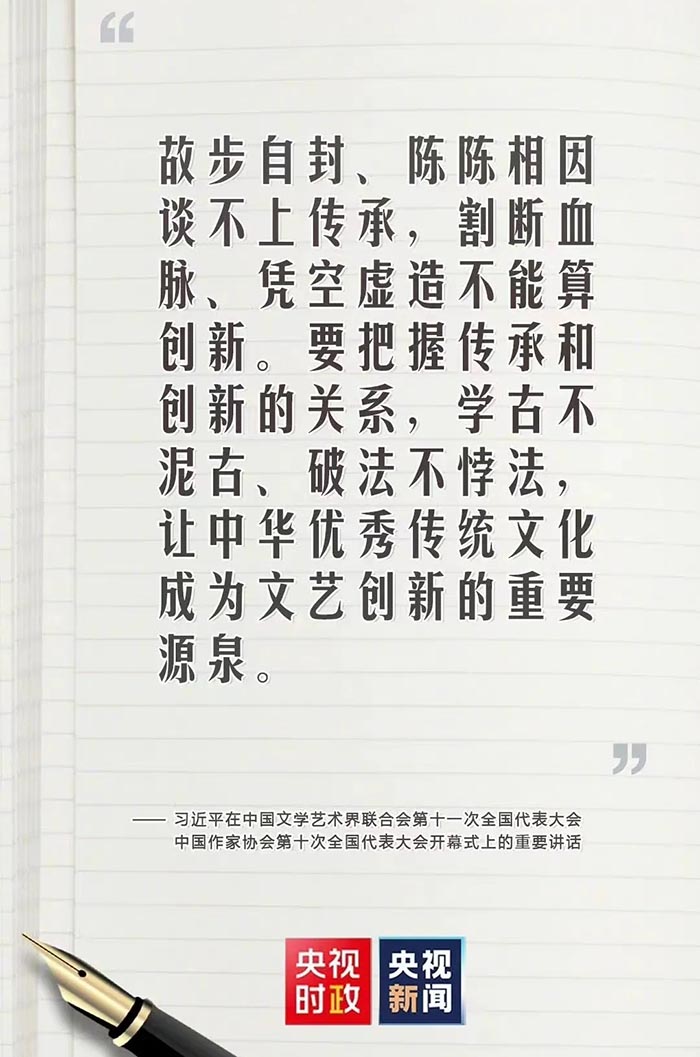 “
故步自封、陈陈相因
谈不上传承，割断血
脉、凭空虚造不能算
创新。要把握传承和
创新的关系，学古不
泥古、破法不悖法，
让中华优秀传统文化
成为文艺创新的重要
源泉。
”
—— 习近平在中国文学艺术界联合会第十一次全国代表大会
中国作家协会第十次全国代表大会开幕式上的重要讲话
央视 央视
时政 新闻